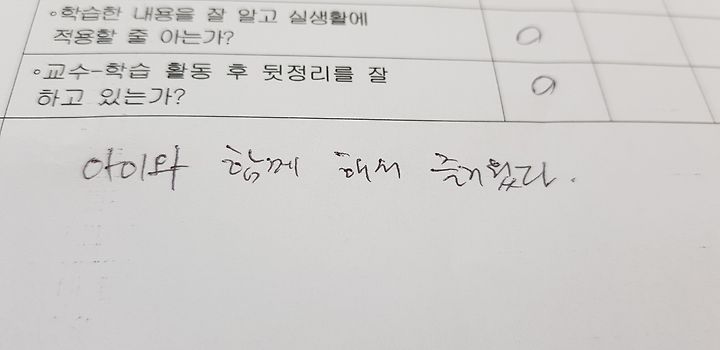 ◦학습한 내용을 잘 알고 실생활에
적용할 줄 아는가?
◦교수-학습 활동 후 뒷정리를 잘
하고 있는가?
아이와 함께 해서 즐거웠다.